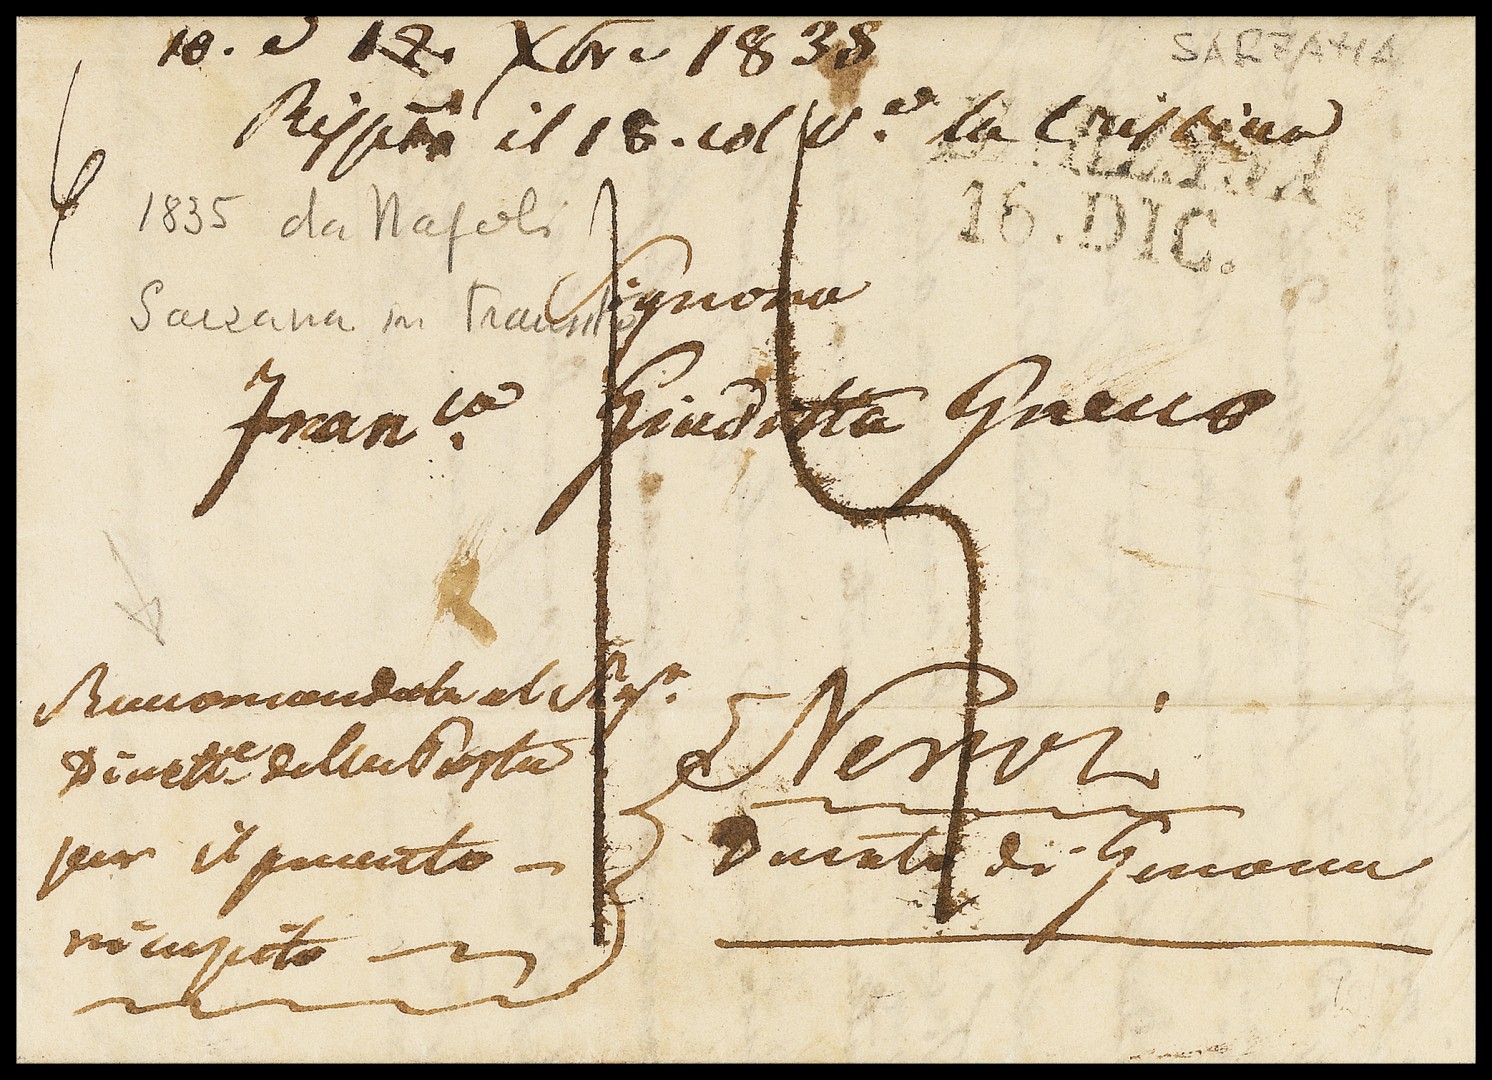 10. e 12. Xbre 1835
SARZANA
Rispta il 18. col V.e la Cristina
SARZANA
16.DIC.
1835 da Napoli
Sarzana in transito
Signora
Fran.ca Giuditta Greco
15
Raccomandata al Sigr.
Dirette. della Posta
per il pronto
ricapito
Nervi
Ducato di Genova